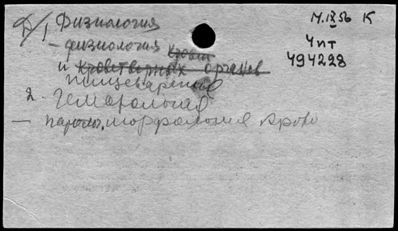 1 Физиология
М.IX 56 К
- физиология крови
Чит
и кроветворных органов
494228
пищеварение
2. Гематология
- патол. морфология крови